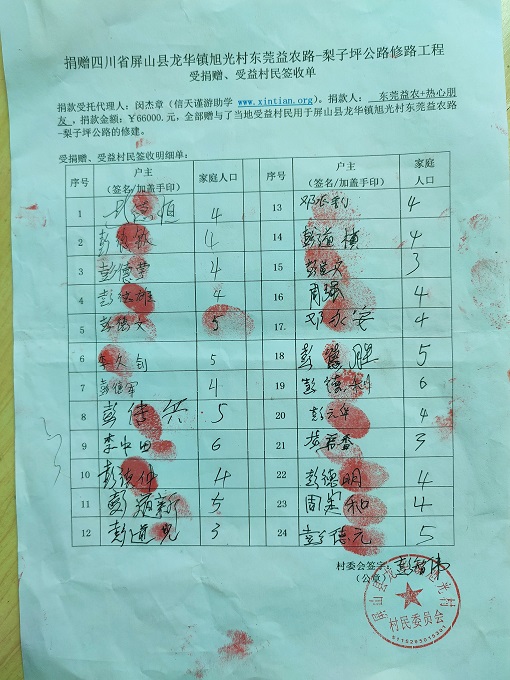 捐赠四川省屏山县龙华镇旭光村东莞益农路-梨子坪公路修路工程
受捐赠、受益村民签收单
捐款受托代理人：闵杰章（信天谨游助学 www.xintian.org）。捐款人： 东莞益农+热心朋
友，捐款金额：¥66000.元，全部赠与了当地受益村民用于屏山县龙华镇旭光村东莞益农路
-梨子坪公路的修建。
受捐赠、受益村民签收明细单：
序号 户主（签名/加盖手印） 家庭人口 序号 户主（签名/加盖手印） 家庭人口
1 4 13 邓永利 4
2 4 14 彭道楨 4
3 彭德华 4 15 彭道文 3
4 彭德雄 4 16 周强 4
5 彭德文 5 17. 邓永安 4
6 李久剑 5 18 彭德胜 5
7 彭德军 4 19 彭德利 6
8 5 20 彭元华 4
9 李中田 6 21 3
10 4 22 彭德明 4
11 彭道新 5 23 周宪和 4
12 彭道兄 3 24 彭德元 5
村委会签字：
（公章）
屏山县龙 旭光村
村民委员会